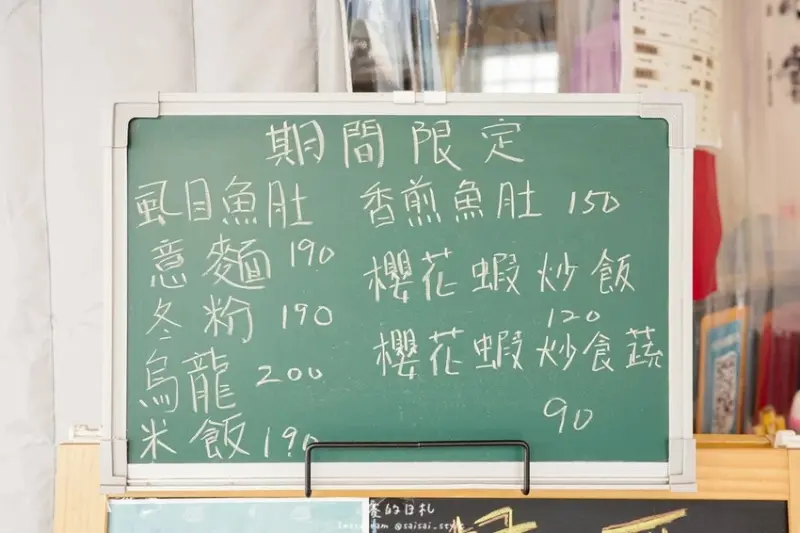 期間限定
虱目魚肚
意麵 190
冬粉 190
烏龍 200
米飯 190
香煎魚肚 150
櫻花蝦炒飯
120
櫻花蝦炒食蔬
90
的日札
Instagram @saisai_style